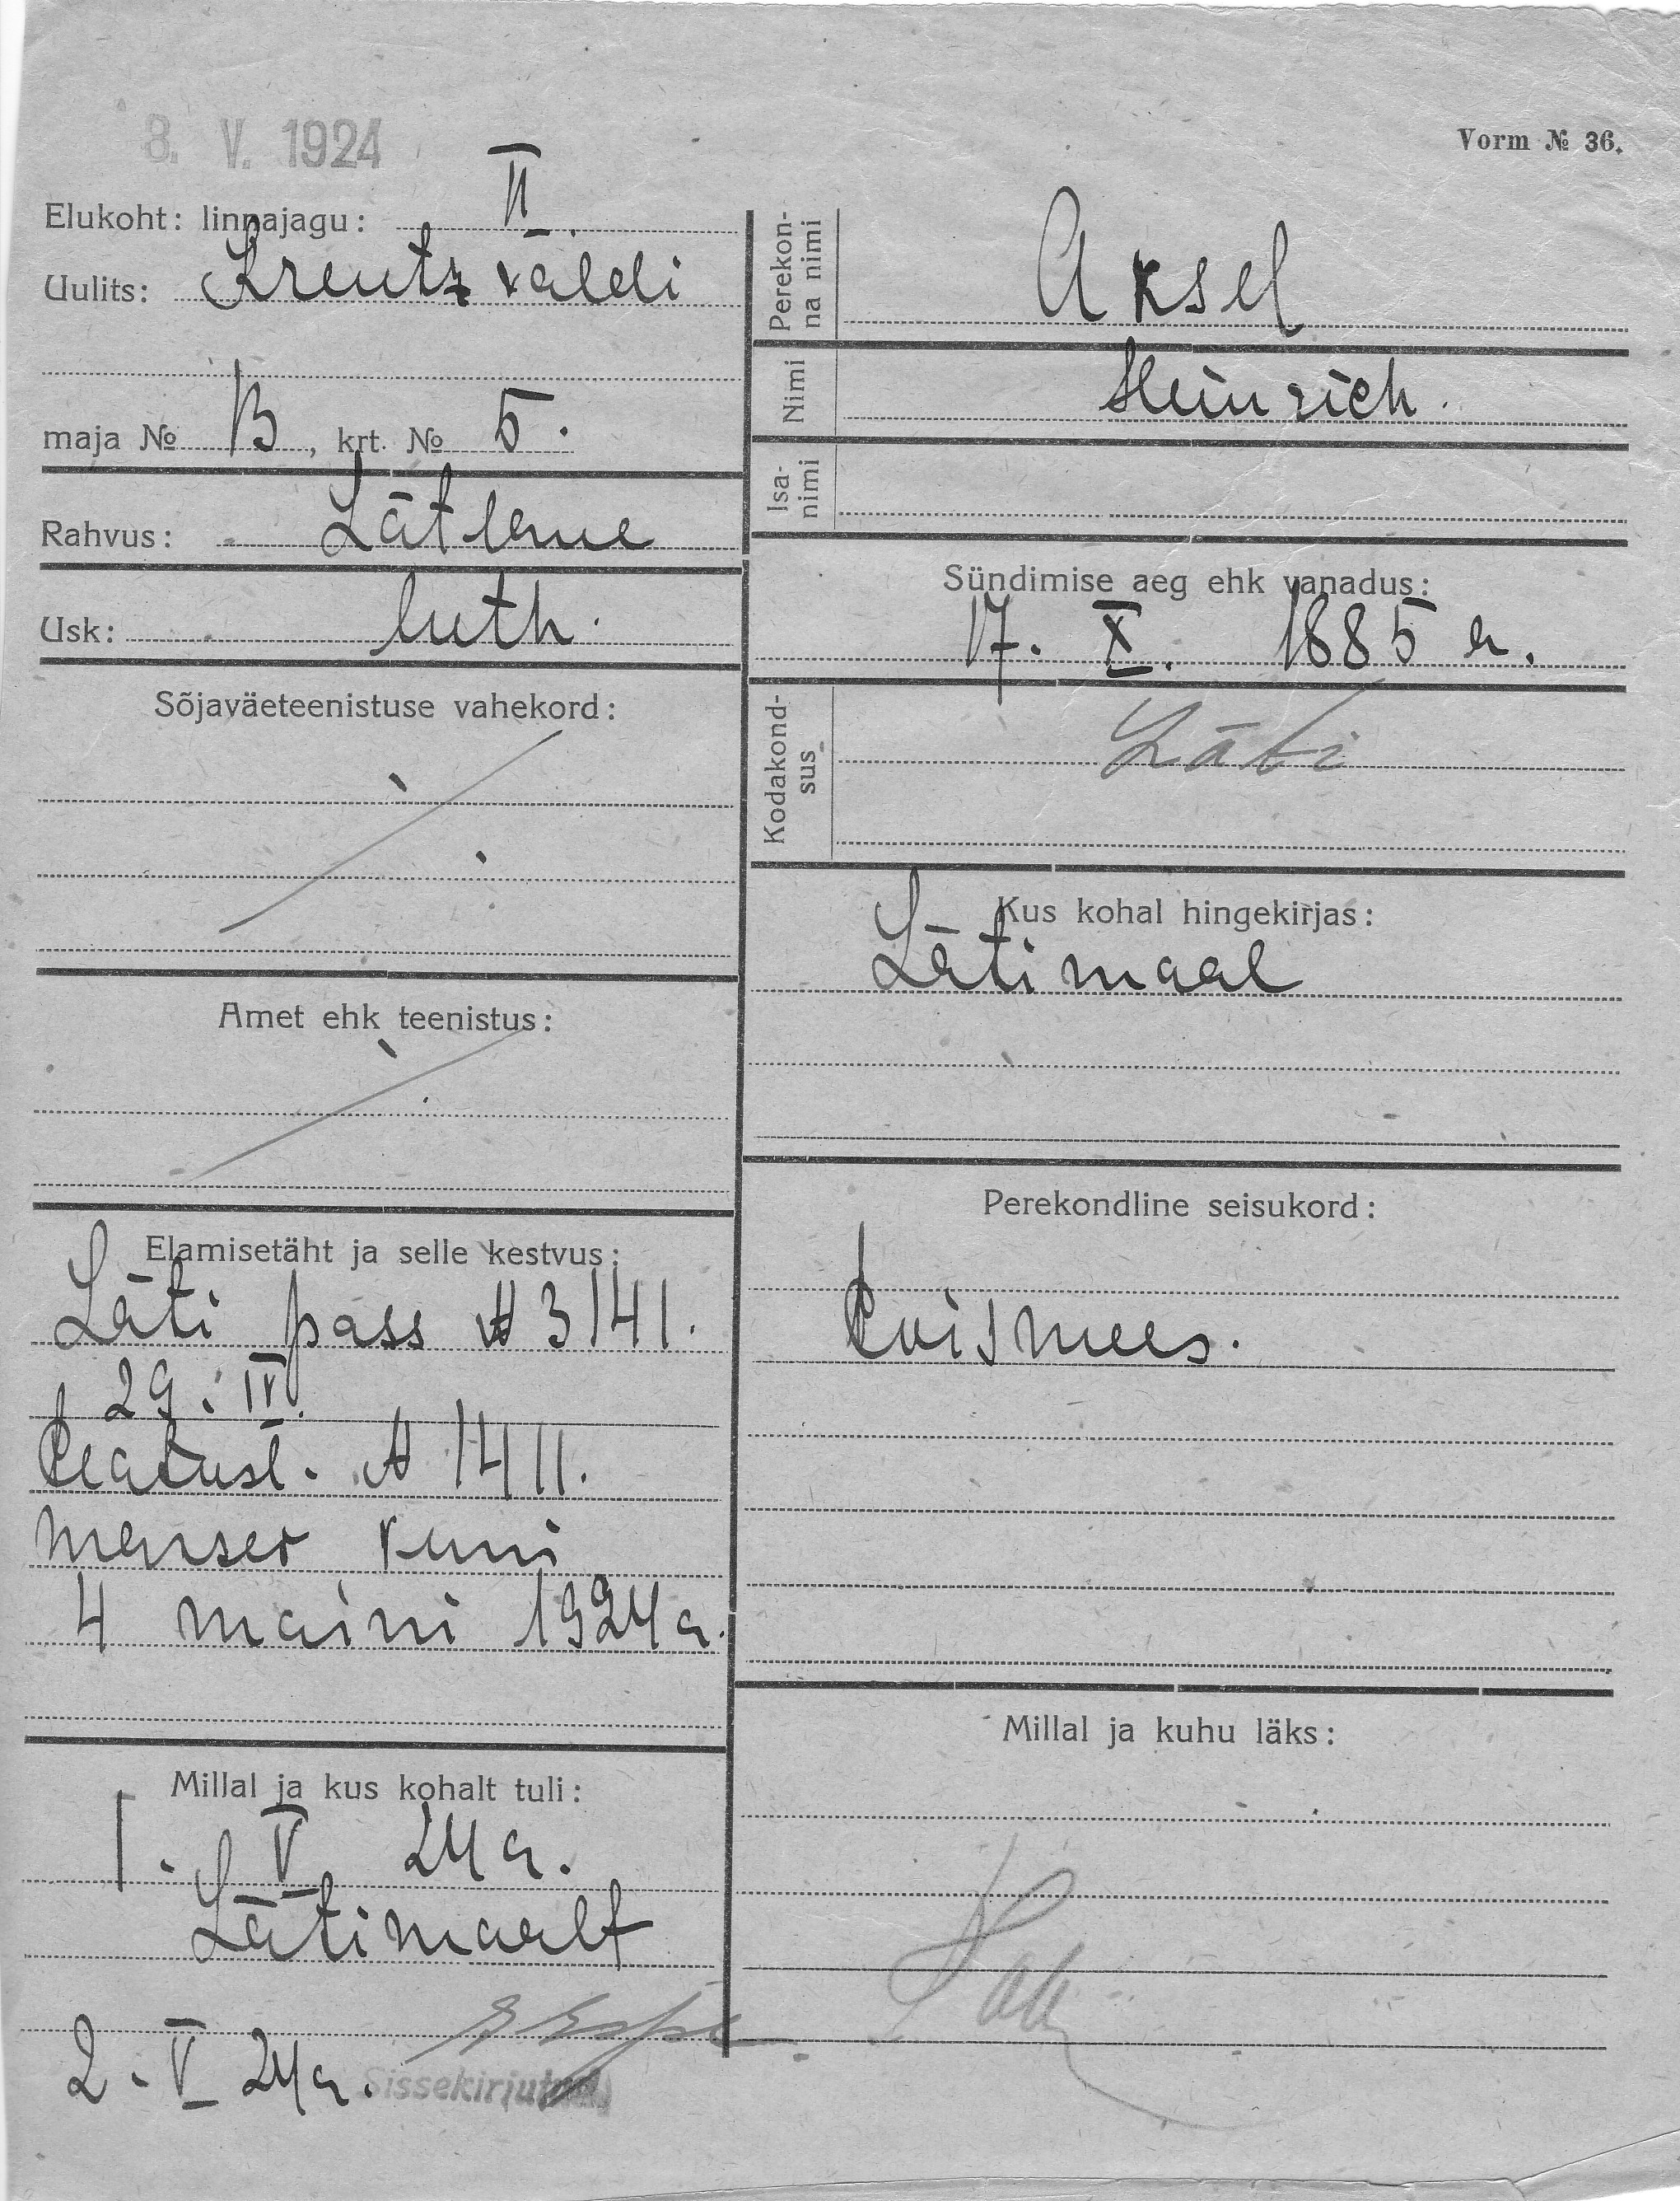 8. V. 1924
Vorm № 36.
Elukoht: linnajagu: II
Uulits: Kreutzvaldi
maja № 13, krt. № 5.
Rahvus: Lätlane
Usk: luth.
Sõjaväeteenistuse vahekord:
Amet ehk teenistus:
Elamisetäht ja selle kestvus:
Läti pass № 3141.
29. IV.
Peatusl. № 1411.
kuni
4 maini 1924 a.
Millal ja kus kohalt tuli:
1. V 24 a.
Lätimaalt
2. V 24 a.
Sissekirjutud
Perekon-
na nimi
Aksel
Nimi
Heinrich.
Isa-
nimi
Sündimise aeg ehk vanadus:
17. X. 1885 a.
Kodakond-
sus
Läti
Kus kohal hingekirjas:
Lätimaal
Perekondline seisukord:
Poismees.
Millal ja kuhu läks: